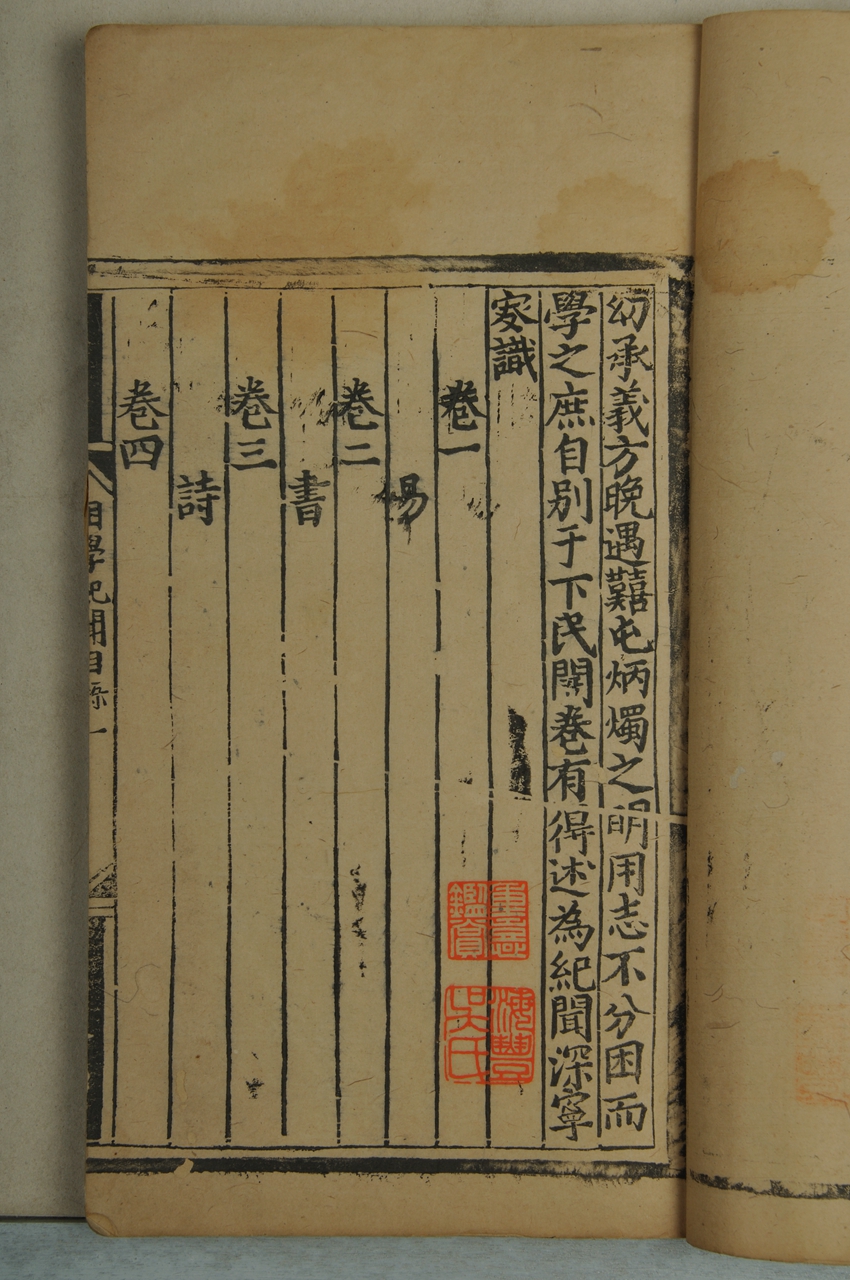 幼承義方晚遇囏屯炳燭之明用志不分困而
學之庶自别于下民開卷有得述為紀聞深寧
叜識
卷一
易
卷二
書
卷三
詩
卷四
困學紀聞目録一
海豐
吳氏
鑑賞